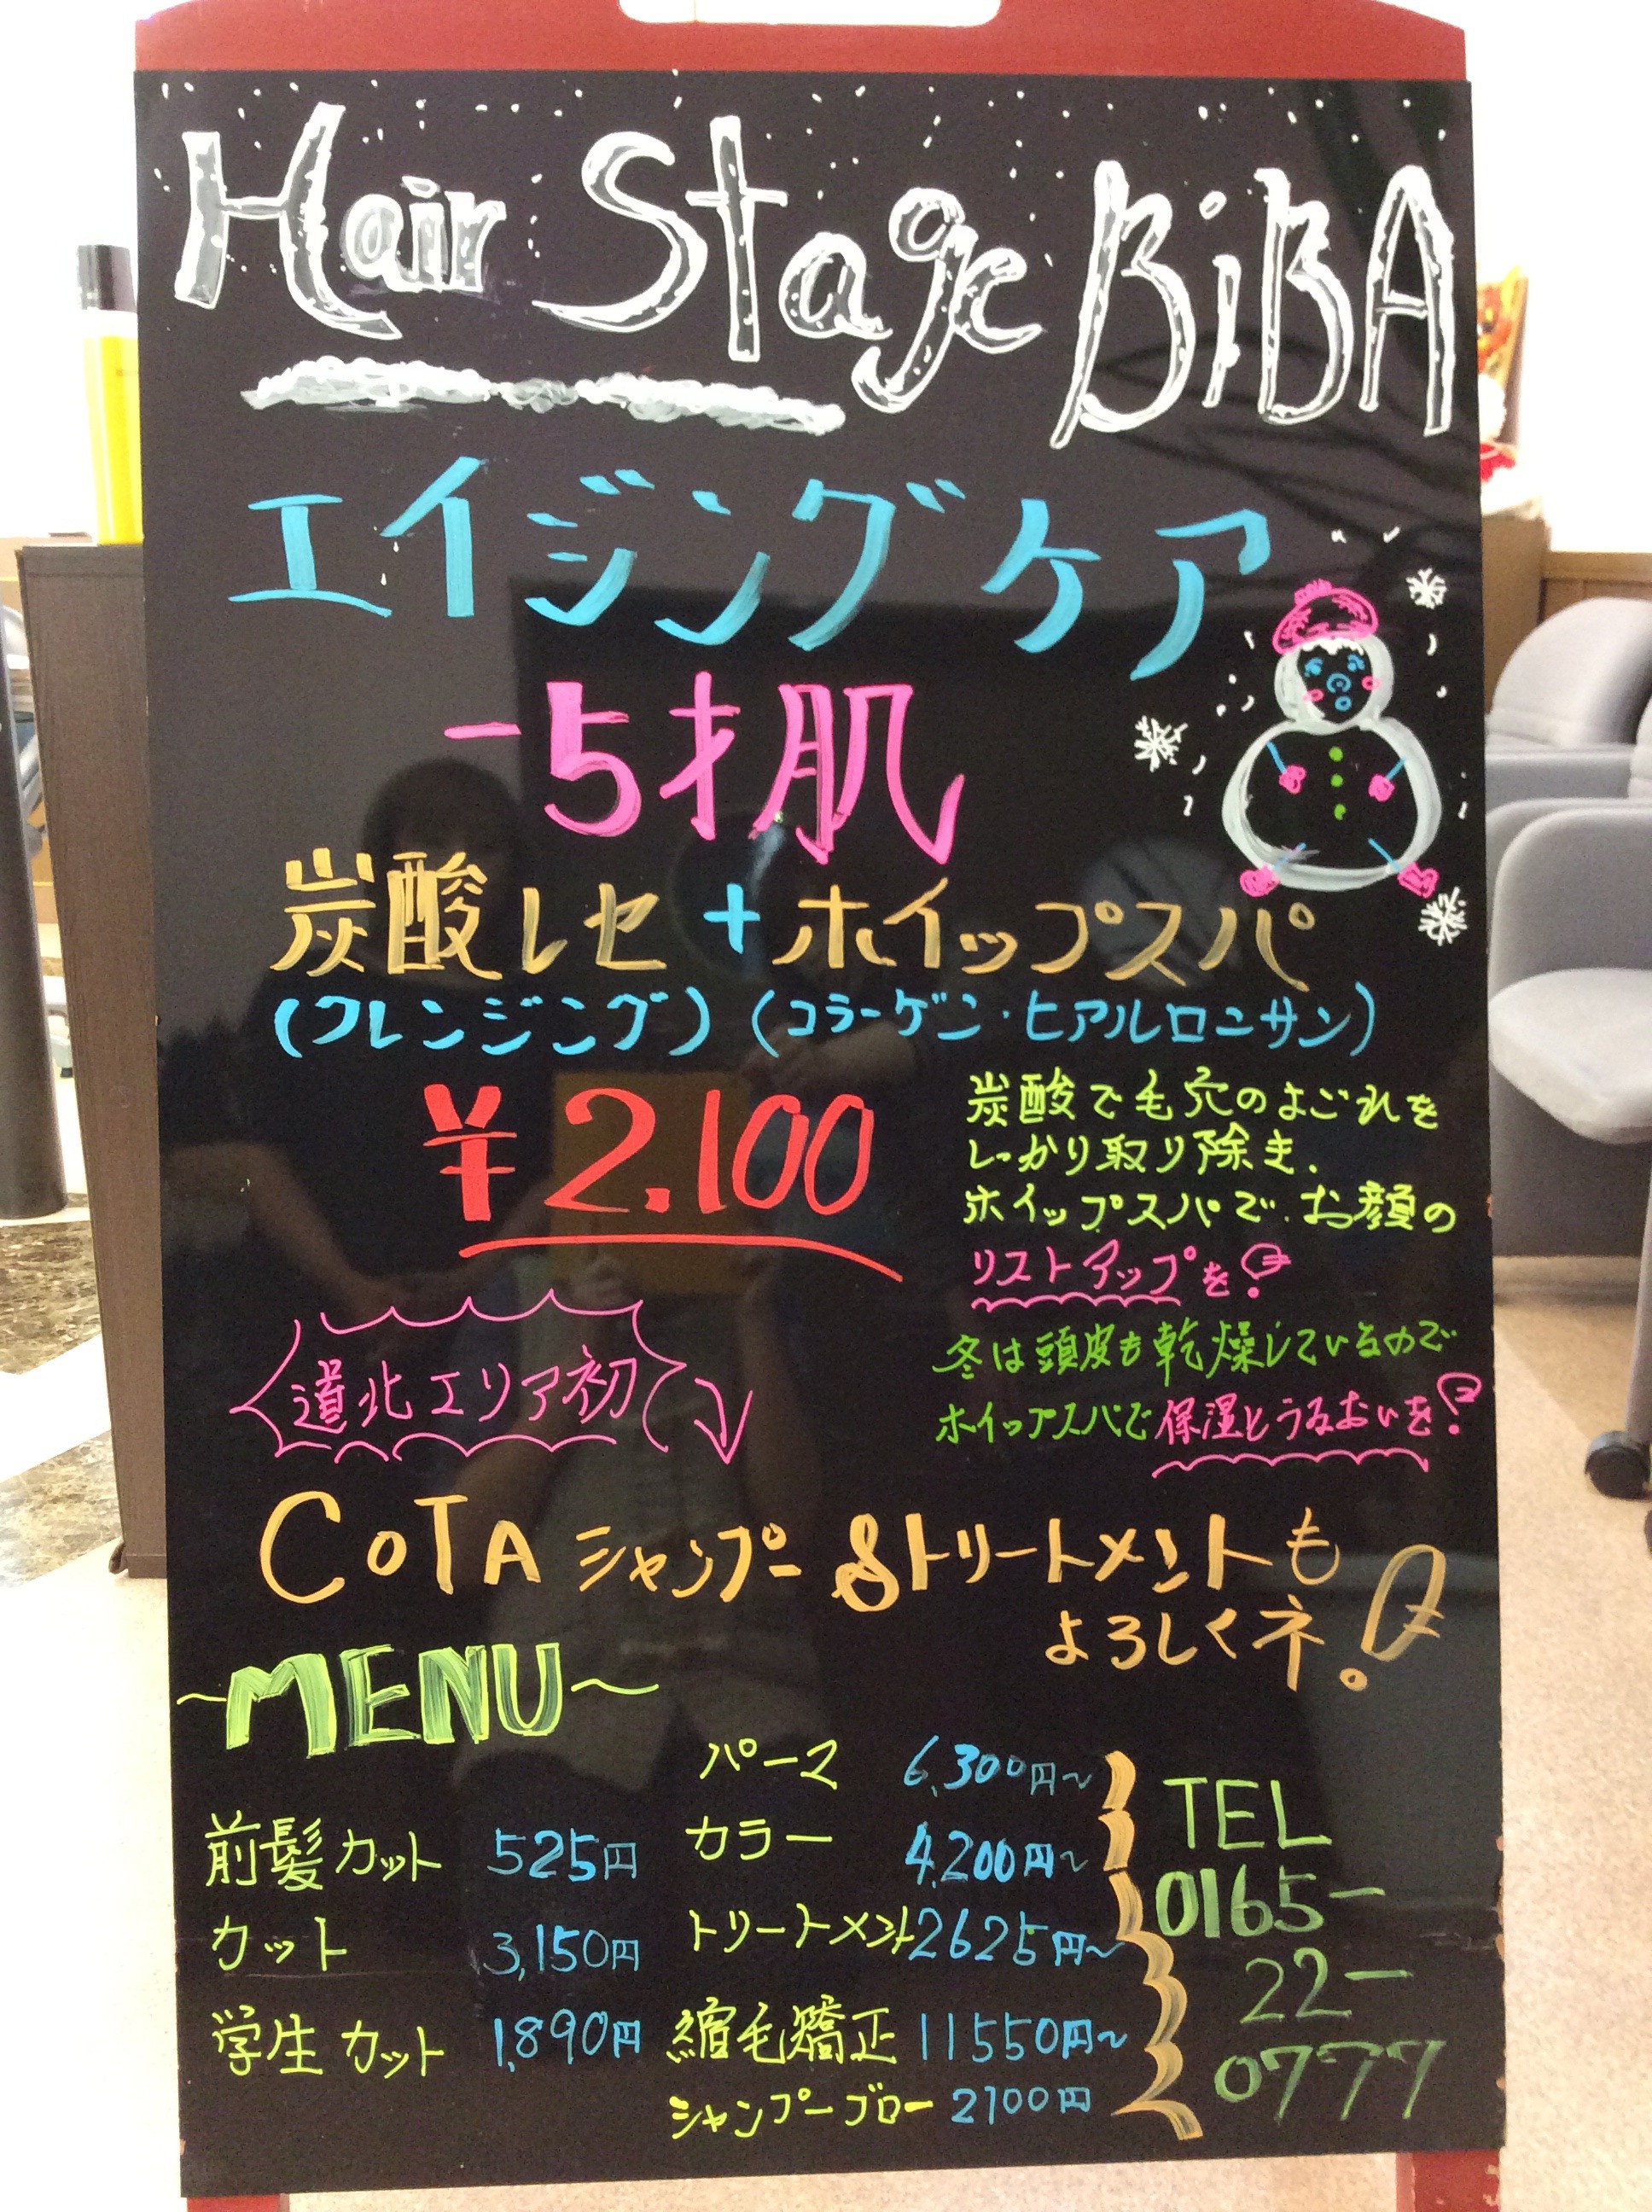 Hair Stage BiBA
エイジングケア
-5才肌
炭酸レセ+ホイップスパ
(クレンジング)(コラーゲン・ヒアルロニサン)
¥2.100
炭酸で毛穴のよごれを
しっかり取り除き.
ホイップスパで.お顔の
リストアップを!
冬は頭皮も乾燥しているので
ホイップスパで保湿とうるおいを!
道北エリア初
COTA シャンプー&トリートメントも
よろしくネ!
~MENU~
前髪カット 525円
カット 3,150円
学生カット 1,890円
パーマ 6,300円~
カラー 4,200円~
トリートメント 2625円~
縮毛矯正 11550円~
シャンプーブロー 2100円
TEL
0165-
22-
0777